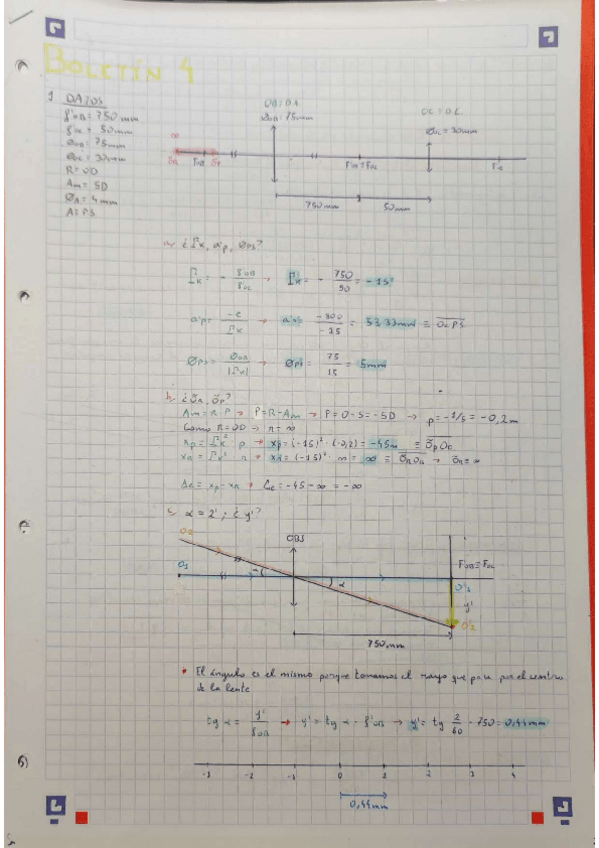 BOLETÍN 4
1 DATOS
f'OB = 750 mm
f'OC = 50mm
ØOB = 75mm
ØOC = 30mm
R = 0D
Am = 5D
ØA = 4mm
A ≡ PS
OB ≡ DA
ØOB = 75mm
OC ≡ DL
ØOC = 30mm
∞
F'OB ≡ FOC
750mm
50mm
a. ¿ΓK, a'p, ØPS?
ΓK = - f'OB / f'OC → ΓK = - 750 / 50 = -15x
a'p = -e / ΓK → a'p = -800 / -15 = 53,33mm ≡ OC PS
ØPS = ØOB / |ΓK| → ØPS = 75 / 15 = 5mm
b. ¿õR, õP?
Am = R-P → P = R-Am → P = 0-5 = -5D → p = -1/5 = -0,2m
Como R = 0D → r = ∞
xp = ΓK² · p → xp = (-15)² · (-0,2) = -45m ≡ õp OB
xR = ΓK² · r → xR = (-15)² · ∞ = ∞ ≡ õR OB → õR = ∞
Δc = xp - xR → Δc = -45 - ∞ = -∞
c. α = 2' ; ¿y'?
O2
OBJ
O1
α
α
F'OB ≡ FOC
O'1
y'
O'2
750mm
• El ángulo es el mismo porque tomamos el rayo que pasa por el centro
de la lente
tg α = y' / f'OB → y' = tg α · f'OB → y' = tg 2/60 · 750 = 0,44mm
-3 -2 -1 0 1 2 3 4
0,44mm